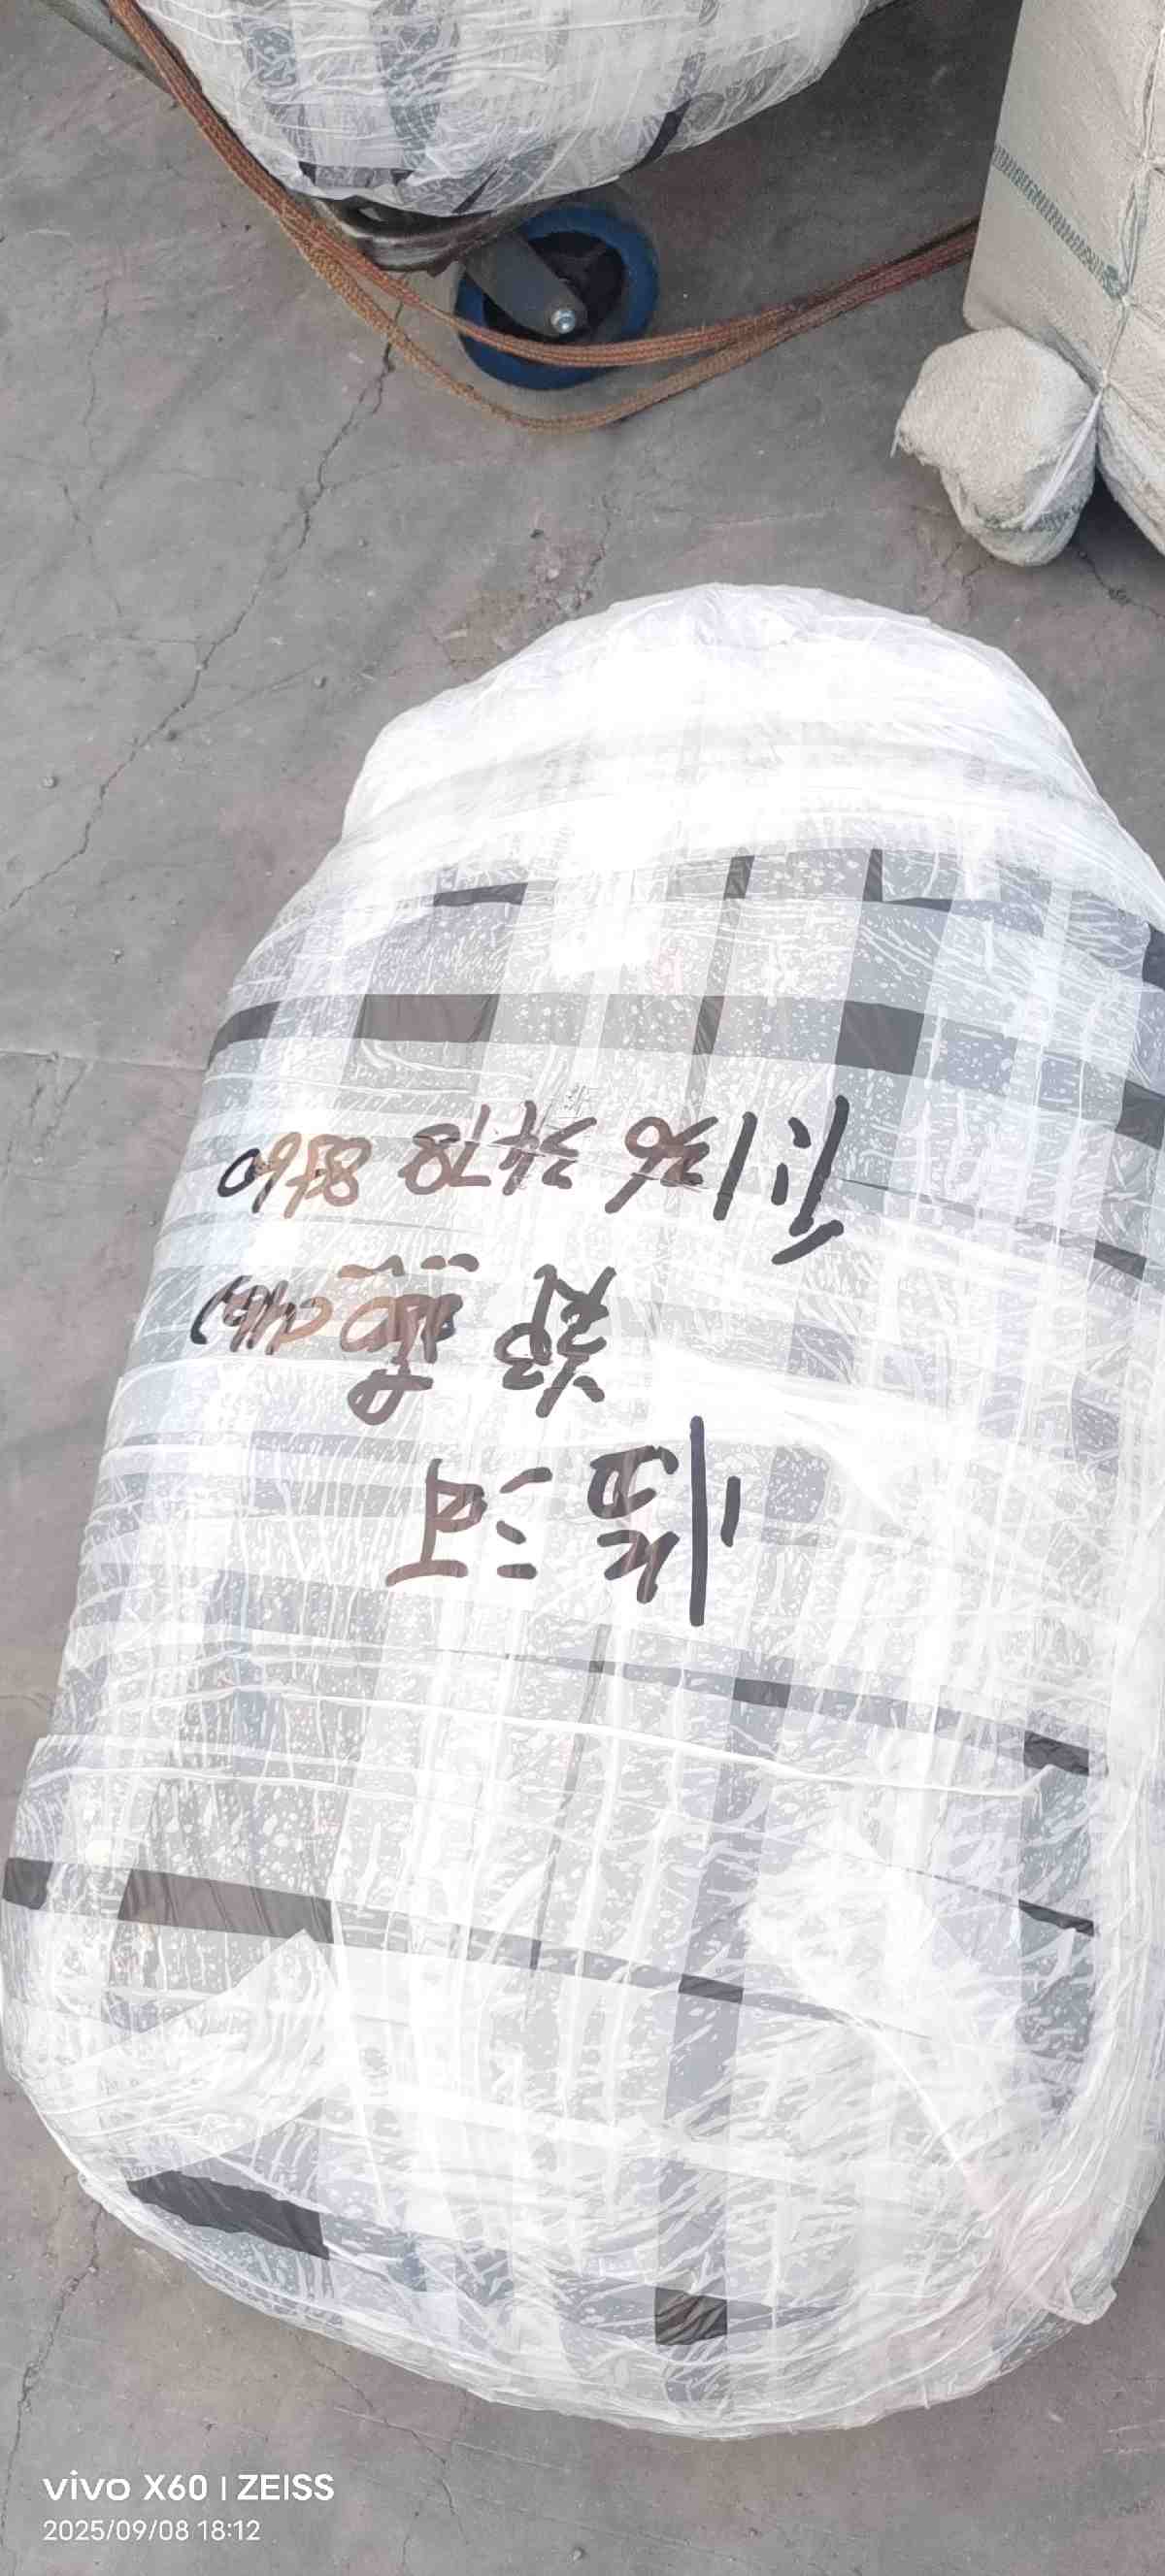 临河
郑
136 3478 8560
vivo X60 | ZEISS
2025/09/08 18:12